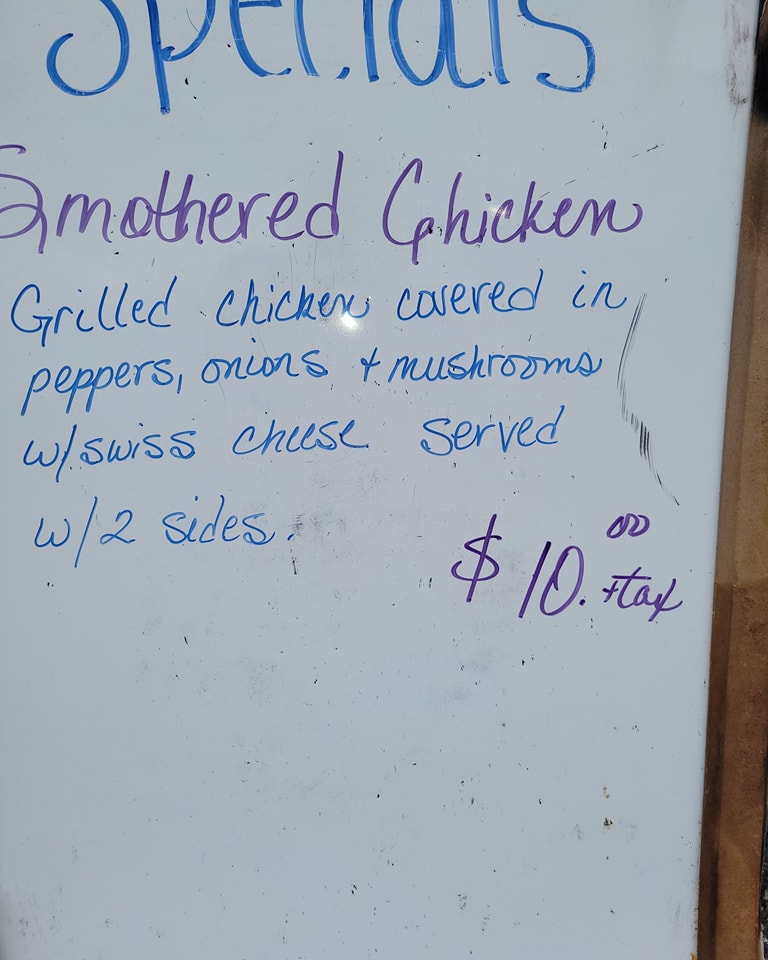 Specials
Smothered Chicken
Grilled chicken covered in
peppers, onions + mushrooms
w/swiss cheese served
w/2 sides.
$10.00 +tax